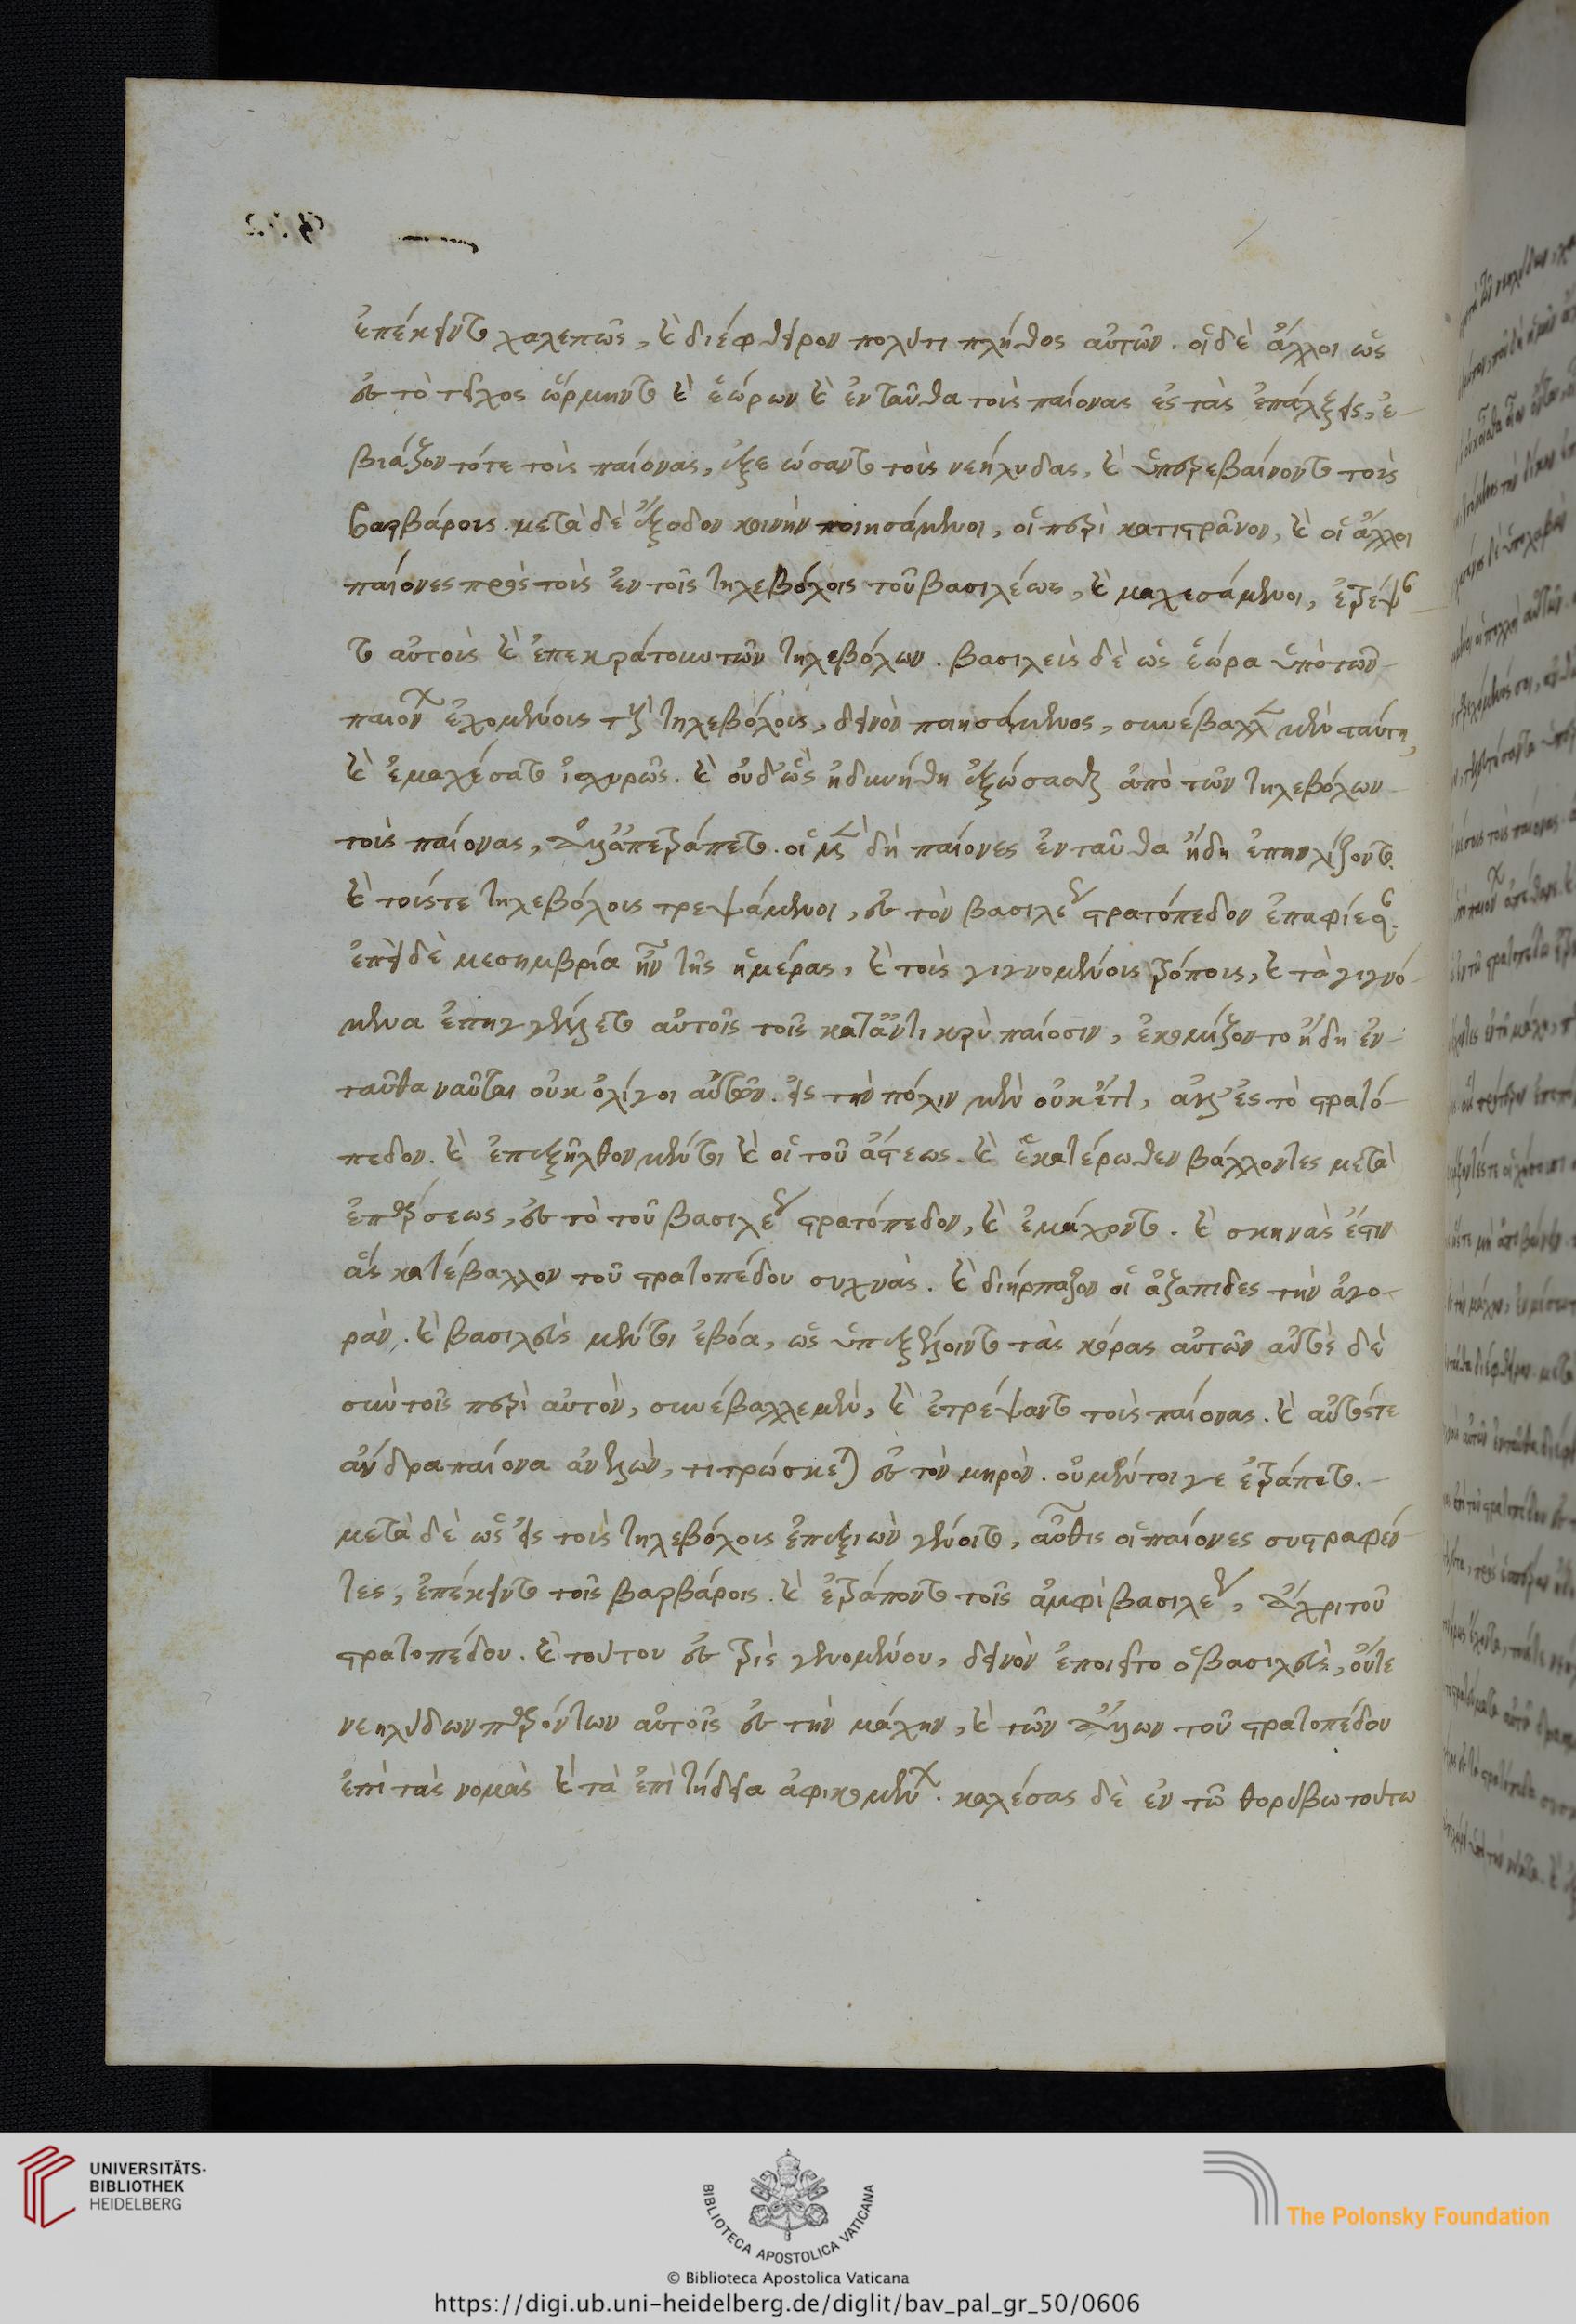 ἐπέκειντο χαλεπῶς, καὶ διέφθειρον πολύτι πλῆθος αὐτῶν. οἱ δὲ ἄλλοι ὡς
ἐπὶ τὸ τεῖχος ὥρμηντο καὶ ἑώρων καὶ ἐνταῦθα τοὺς παίονας ἐς τὰς ἐπάλξεις, ἐ-
βιάζοντό τε τοὺς παίονας, ἐξεώσαντο τοὺς νεήλυδας, καὶ ὑπερεβαίνοντο τοὺς
βαρβάρους. μετὰ δὲ ἔξοδον κοινὴν ποιησάμενοι, οἱ περὶ κατιστρᾶνον, καὶ οἱ ἄλλοι
παίονες πρὸς τοὺς ἐν τοῖς τηλεβόλοις τοῦ βασιλέως, καὶ μαχεσάμενοι, ἐτρέψαν-
το αὐτοὺς καὶ ἐπεκράτουν τῶν τηλεβόλων. βασιλεὺς δὲ ὡς ἑώρα ὑπὸ τῶν
παιόνων ἐχομένους τοὺς τηλεβόλους, δεινὸν ποιησάμενος, συνέβαλλε μὲν ταύτῃ,
καὶ ἐμαχέσατο ἰσχυρῶς. καὶ οὐδ' ὣς ἠδυνήθη ἐξώσασθαι ἀπὸ τῶν τηλεβόλων
τοὺς παίονας, ἀλλ' ἀπετράπετο. οἱ μὲν δὴ παίονες ἐνταῦθα ἤδη ἐπηυλίζοντο.
καὶ τούς τε τηλεβόλους τρεψάμενοι, ἐπὶ τὸν βασιλέως στρατόπεδον ἐπαφίεσαν.
ἐπεὶ δὲ μεσημβρία ἦν τῆς ἡμέρας, καὶ τοὺς γιγνομένους τρόπους, καὶ τὰ γιγνό-
μενα ἐπηγγέλλετο αὐτοῖς τοῖς καταντικρὺ παίοσιν, ἐκομίζοντο ἤδη ἐν-
ταῦθα ναῦται οὐκ ὀλίγοι αὐτῶν. εἰς τὴν πόλιν μὲν οὐκέτι, ἀλλ' ἐς τὸ στρατό-
πεδον. καὶ ἐπεξῆλθον μέντοι καὶ οἱ τοῦ ἄστεως. καὶ ἑκατέρωθεν βάλλοντες μετὰ
ἐπιρρύσεως, ἐπὶ τὸ τοῦ βασιλέως στρατόπεδον, καὶ ἐμάχοντο. καὶ σκηνὰς ἔστιν
ἃς κατέβαλλον τοῦ στρατοπέδου συχνάς. καὶ διήρπαζον οἱ ἀζάπιδες τὴν ἀγο-
ράν. καὶ βασιλεὺς μέντοι ἐβόα, ὡς ὑπεξέλοιντο τὰς κόρας αὐτῶν αὐτὸς δὲ
σὺν τοῖς περὶ αὐτὸν, συνέβαλλε μὲν, καὶ ἐτρέψαντο τοὺς παίονας. καὶ αὐτός τε
ἄνδρα παίονα ἀνελὼν, τιτρώσκεται ἐπὶ τὸν μηρόν. οὐ μέντοι γε ἐτράπετο.
μετὰ δὲ ὡς εἰς τοὺς τηλεβόλους ἐπεξιὼν γένοιτο, αὖθις οἱ παίονες συστραφέν-
τες, ἐπέκειντο τοῖς βαρβάροις. καὶ ἐτράποντο τοῖς ἀμφὶ βασιλέως, ἄχρι τοῦ
στρατοπέδου. καὶ τούτου ἐπὶ τρὶς γενομένου, δεινὸν ἐποιεῖτο ὁ βασιλεὺς, οὔτε
νεηλύδων παρόντων αὐτοῖς ἐπὶ τὴν μάχην, καὶ τῶν ἄλλων τοῦ στρατοπέδου
ἐπὶ τὰς νομὰς καὶ τὰ ἐπιτήδεια ἀφικομένων. καλέσας δὲ ἐν τῷ θορύβῳ τούτῳ
UNIVERSITÄTS-
BIBLIOTHEK
HEIDELBERG
BIBLIOTECA APOSTOLICA VATICANA
The Polonsky Foundation
© Biblioteca Apostolica Vaticana
https://digi.ub.uni-heidelberg.de/diglit/bav_pal_gr_50/0606